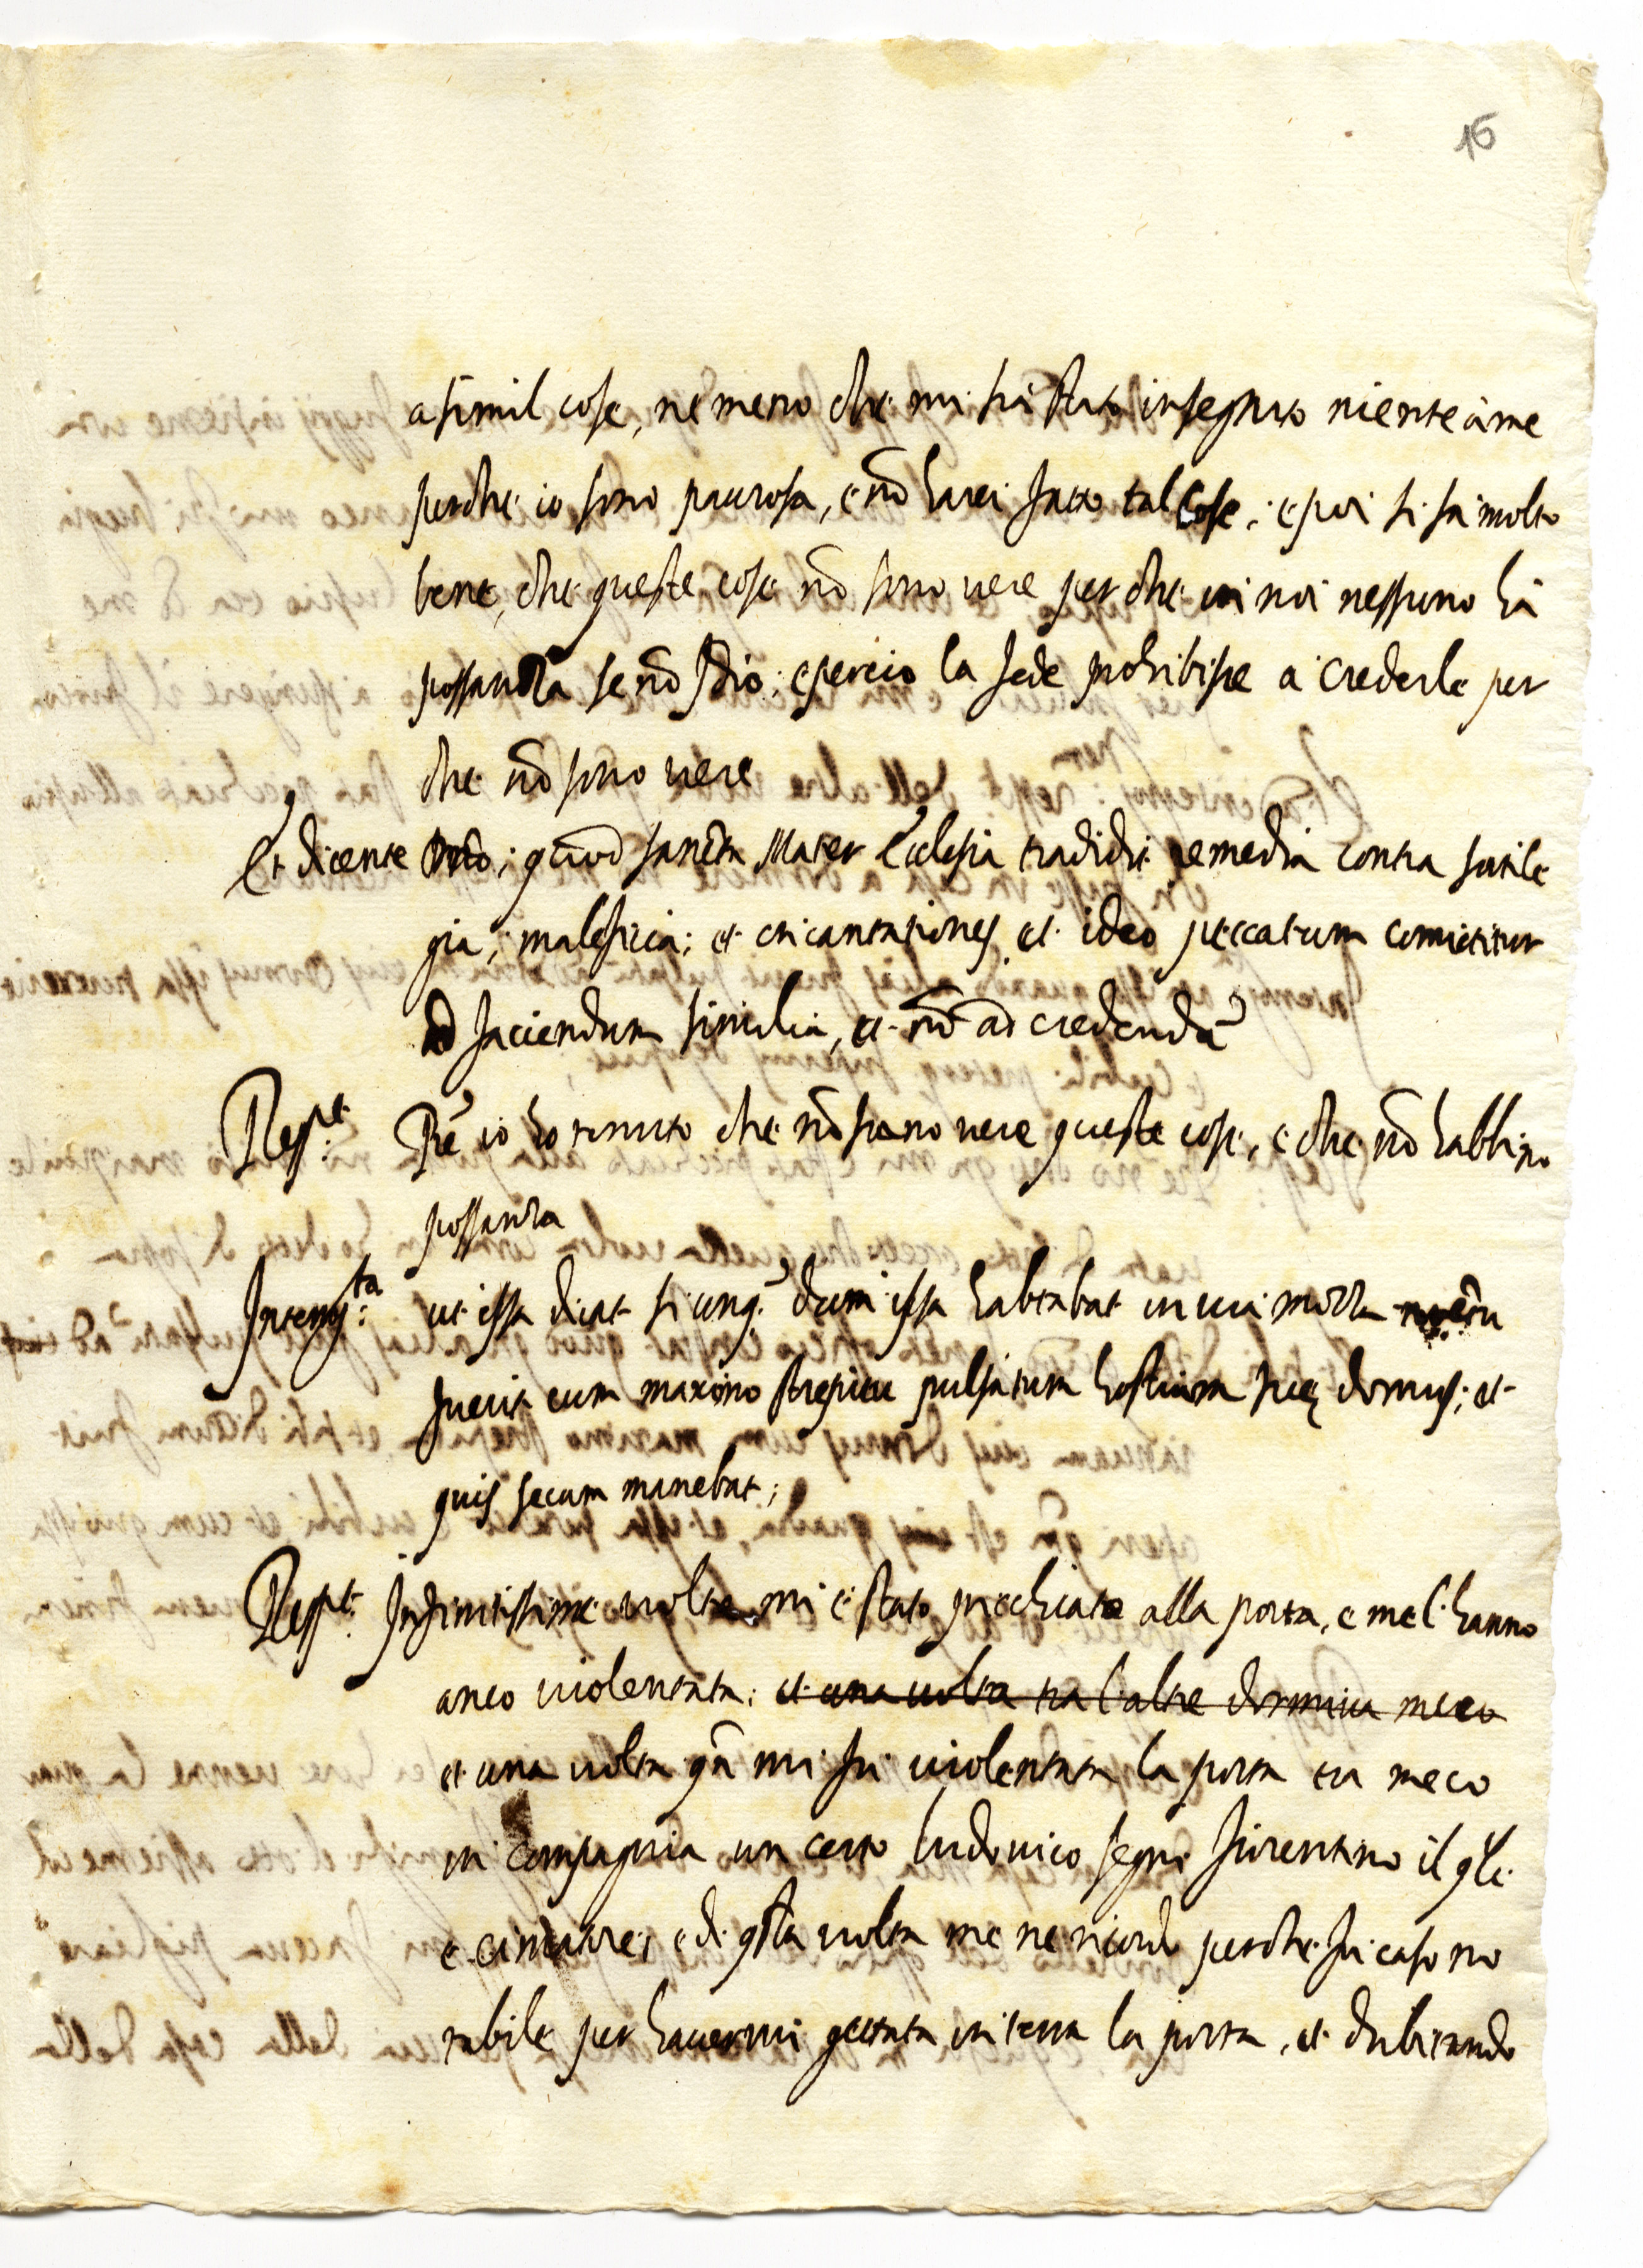 16
a simil cose, ne meno che mi sia stato insegnato niente à me
perche io sono paurosa, e nõ harei fatto tal cose; e poi si sà molto
bene, che queste cose nõ sono vere perche in noi nessuno hà
possanza se nõ Iddio; e perciò la fede prohibisce a crederle per
che nõ sono vere
Et dicente Dño; quod sancta Mater Ecclesia tradidit remedia contra sortile
gia; maleficia; et incantationes, et ideo peccatum comittitur
ad faciendum similia, et nõ ad credendũ
Resp.t Pré io ho tenuto che nõ siano vere queste cose, e che nõ habbino
possanza
Interrog.ta ut ipsa dicat si unq. dum ipsa habitabat in via mozza noctu
fuerit cum maximo strepitu pulsatum hostium suę domus; et
quis secum manebat;
Resp.t Infinitissime volte mi è stato picchiato alla porta, e me l'hanno
anco violentata; et una volta tra l'altre dormiva meco
et una volta qñ mi fu violentata la porta era meco
in compagnia un certo Ludovico segni fiorentino il qle
e cimatore; e di qsta volta me ne ricordo perche fu caso no
tabile per havermi gettata in terra la porta, et dubitando